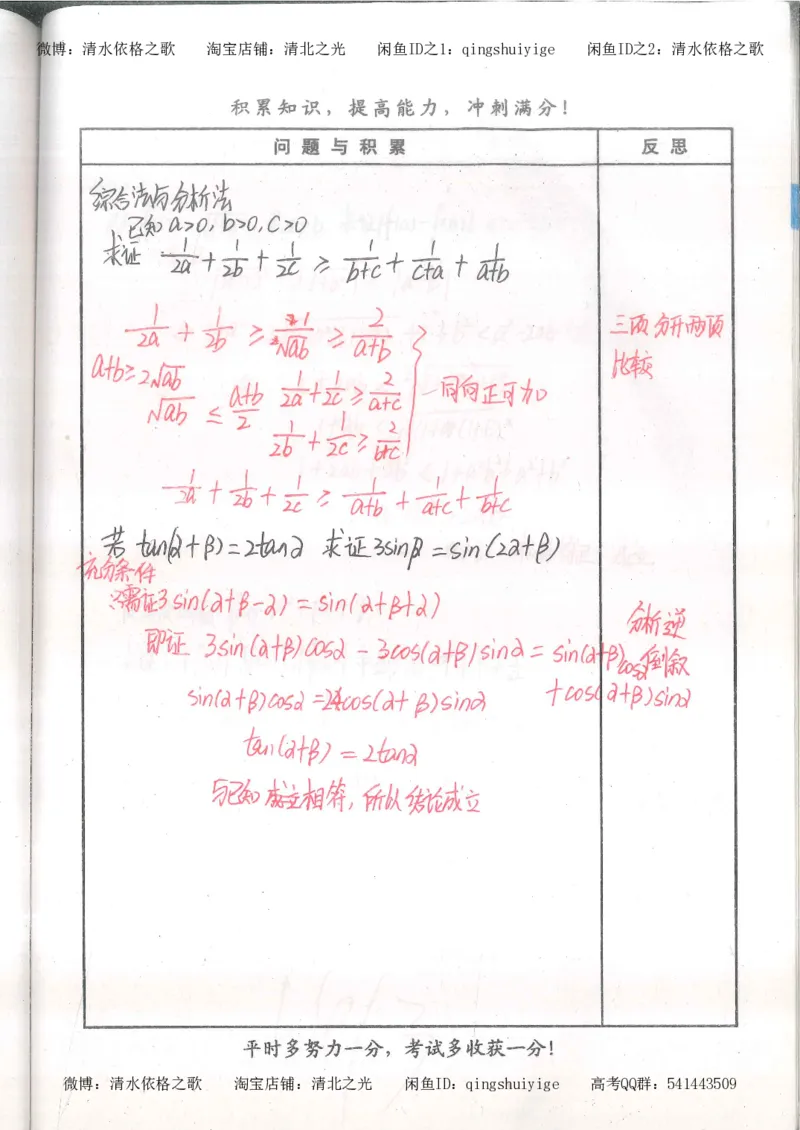 微博：清水依格之歌 淘宝店铺：清北之光 闲鱼ID之1：qingshuiyige 闲鱼ID之2：清水依格之歌
积累知识，提高能力，冲刺满分！
问题与积累 反思
综合法与分析法
已知 a>0, b>0, c>0
求证 1/2a + 1/2b + 1/2c ≥ 1/b+c + 1/c+a + 1/a+b
1/2a + 1/2b ≥ 1/√ab ≥ 2/a+b
三项分开两项
比较
a+b≥2√ab
√ab ≤ a+b/2
1/2a + 1/2c ≥ 2/a+c
同向正可加
1/2b + 1/2c ≥ 2/b+c
1/2a + 1/2b + 1/2c ≥ 1/a+b + 1/a+c + 1/b+c
若 tan(α+β)=2tanα 求证 3sinβ=sin(2α+β)
充分条件
只需证3sin(α+β-α)=sin(α+β+α)
分析逆
倒叙
即证 3sin(α+β)cosα - 3cos(α+β)sinα = sin(α+β)cosα
+cos(α+β)sinα
sin(α+β)cosα=2cos(α+β)sinα
tan(α+β)=2tanα
与已知相等，所以结论成立
平时多努力一分，考试多收获一分！
微博：清水依格之歌 淘宝店铺：清北之光 闲鱼ID：qingshuiyige 高考QQ群：541443509